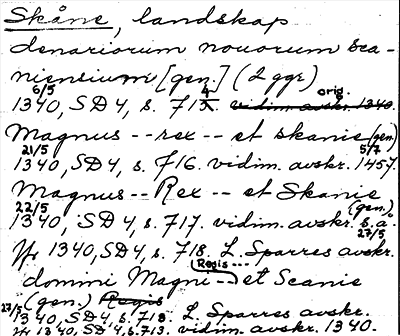 Skåne, landskap
denariorum nouorum sca-
niensium [gen.] (2 ggr)
6/5 4 orig.
1340, SD4, s. 713. vidim. avskr. 1340.
Magnus -- rex -- et skanie (gen)
21/5 5/7
1340, SD4, s. 716. vidim. avskr. 1457.
Magnus -- Rex -- et Skanie
22/5 (gen.)
1340, SD4, s. 717. vidim. avskr. s.a.
27/5
Yr 1340, SD4, s. 718. L. Sparres avskr.
Regis ---
domini Magni -- et Scanie
(gen.) Regis
27/5 1340, SD4, s. 718. L. Sparres avskr.
Yr 1340, SD4, s. 713. vidim. avskr. 1340.